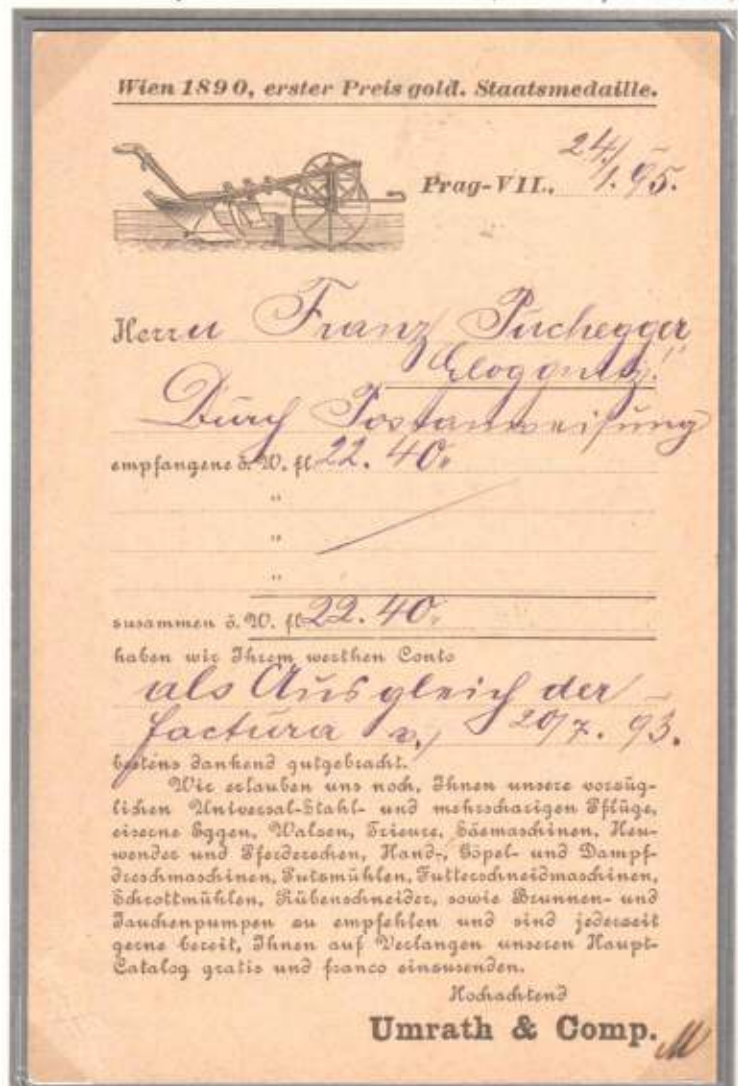 Wien 1890, erster Preis gold. Staatsmedaille.
Prag-VII., 24/1. 95.
Herrn Franz Puchegger
Gloggnitz!
Durch Postanweisung
empfangene ö. W. fl 22. 40.
"
"
"
zusammen ö. W. fl 22. 40.
haben wir Ihrem werthen Conto
als Ausgleich der
factura v. 20/7. 93.
bestens dankend gutgebracht.
Wir erlauben uns noch, Ihnen unsere vorzüg-
lichen Universal-Stahl- und mehrscharigen Pflüge,
eiserne Eggen, Walzen, Trieure, Säemaschinen, Heu-
wender und Pferderechen, Hand-, Göpel- und Dampf-
dreschmaschinen, Putzmühlen, Futterschneidmaschinen,
Schrottmühlen, Rübenschneider, sowie Brunnen- und
Jauchenpumpen zu empfehlen und sind jederzeit
gerne bereit, Ihnen auf Verlangen unseren Haupt-
Catalog gratis und franco einzusenden.
Hochachtend
Umrath & Comp.